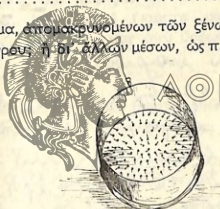 μα, ἀπομακρυνομένων τῶν ξένω
ρου; ἢ δι' ἄλλων μέσων, ὡς π
ΑΘ